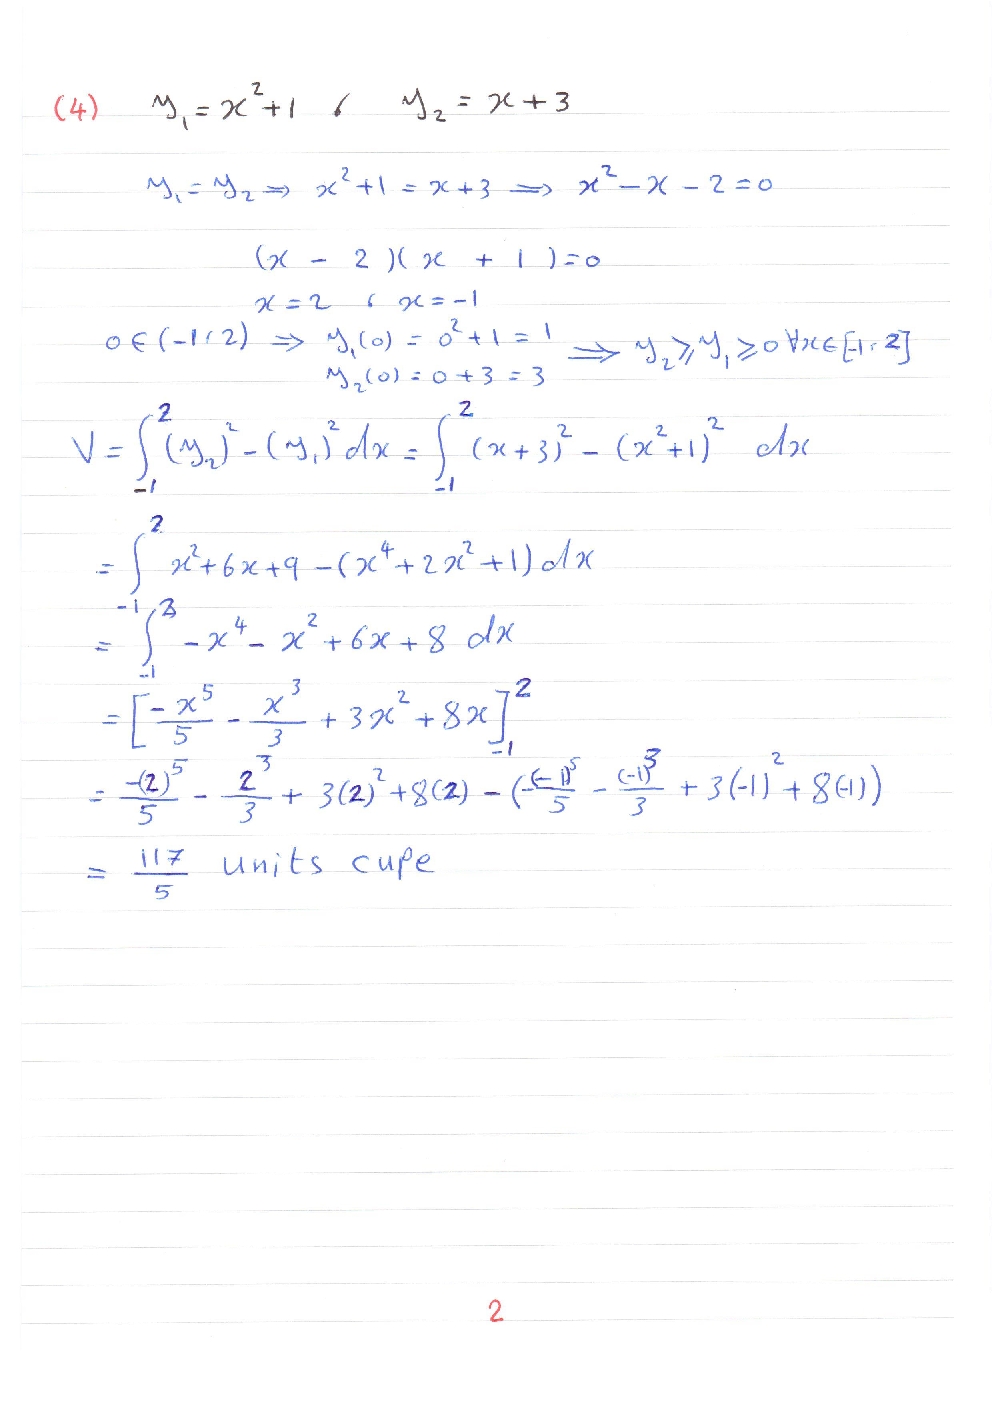 (4) y₁ = x² + 1 ، y₂ = x + 3
y₁ = y₂ ⟹ x² + 1 = x + 3 ⟹ x² − x − 2 = 0
(x − 2)(x + 1) = 0
x = 2 ، x = −1
0 ∈ (−1، 2) ⟹ y₁(0) = 0² + 1 = 1 ⟹ y₂ ⩾ y₁ ⩾ 0 ∀x ∈ [−1، 2]
y₂(0) = 0 + 3 = 3
V = ∫₋₁² (y₂)² − (y₁)² dx = ∫₋₁² (x + 3)² − (x² + 1)² dx
= ∫₋₁² x² + 6x + 9 − (x⁴ + 2x² + 1) dx
= ∫₋₁² −x⁴ − x² + 6x + 8 dx
= [−x⁵/5 − x³/3 + 3x² + 8x]₋₁²
= −(2)⁵/5 − 2³/3 + 3(2)² + 8(2) − (−(−1)⁵/5 − (−1)³/3 + 3(−1)² + 8(−1))
= 117/5 units cupe
2